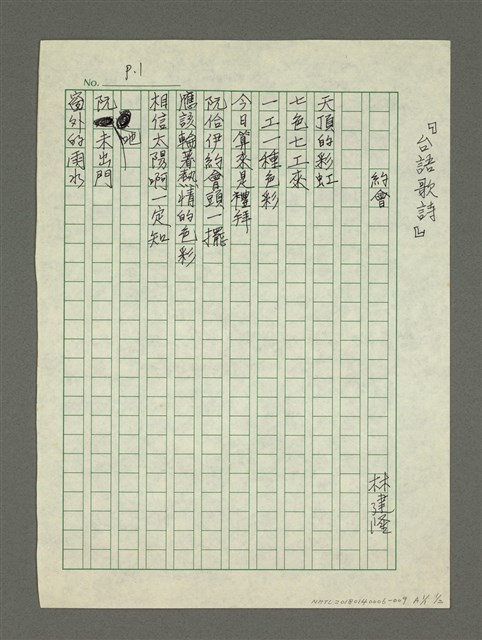 p.1
No.
『台語歌詩』
約會
林建隆
天頂的彩虹
七色七工來
一工一種色彩
今日算來是禮拜
阮佮伊約會頭一擺
應該輪著熱情的色彩
相信太陽啊一定知
吧
阮未出門
窗外的雨水